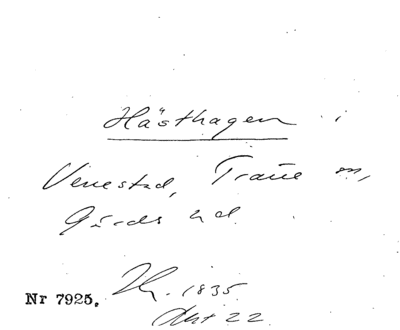 Hästhagen i
Venestad, Träne sn,
Gärds hd.
Nr 7925. 1835
Akt 22